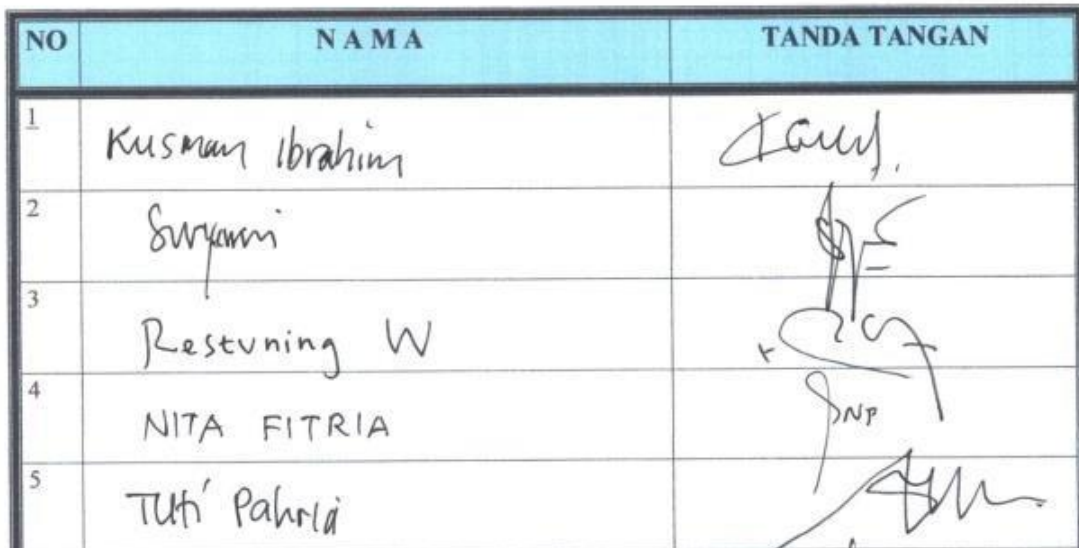 NO NAMA TANDA TANGAN
1 Kusman Ibrahim
2 Suryani
3 Restuning W
4 NITA FITRIA
5 Tuti Pahria